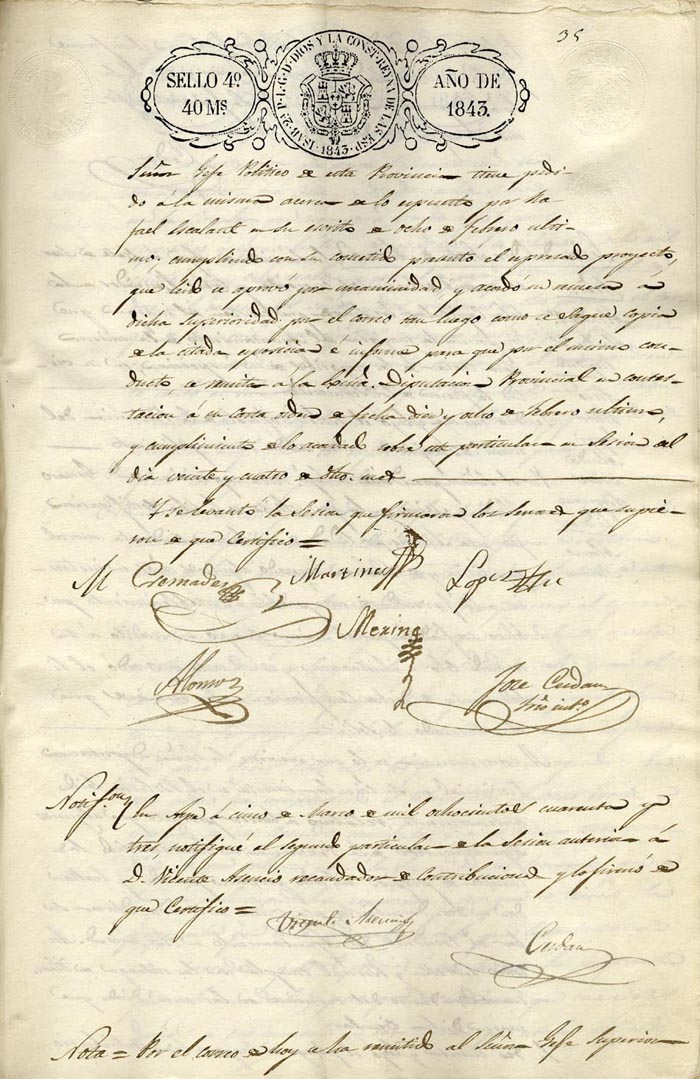 35
SELLO 4º
40 Ms.
ISAB. 2ª P. L. G. D. DIOS Y LA CONST. REYNA DE LAS ESP. 1843.
AÑO DE
1843.
Señor Gefe Politico de esta Provincia tiene pedi-
do á la misma acerca de lo espuesto por Ra
fael Escalant en su escrito de ocho de febrero ulti-
mo; cumpliendo con su cometido presentó el espresado proyecto,
que leido se aprovó por unanimidad y acordó se remita á
dicha superioridad por el correo tan luego como se saque copia
de la citada esposicion é informe para que por el mismo con-
ducto, se remita á la Exmа. Diputacion Provincial en contes-
tacion á su carta orden de fecha diez y ocho de febrero ultimo,
y cumplimiento de lo acordado sobre este particular en Sesion del
dia veinte y cuatro de dho. mes
Y se levantó la Sesion que firmaron los Senores que supie-
ron de que Certifico=
M Cremades Martinez Lopez
Merino
Alonso Jose Cerdan
Srio intº
Notifon En Aspe á cinco de Marzo de mil ochocientos cuarenta y
tres notifiqué el segundo particular de la Sesion anterior á
D. Vicente Asencio recaudador de Contribuciones y lo firmó de
que Certifico=
Vicente Asencio
Cerdan
Nota = Por el correo de hoy se ha remitido al Señor Gefe Superior